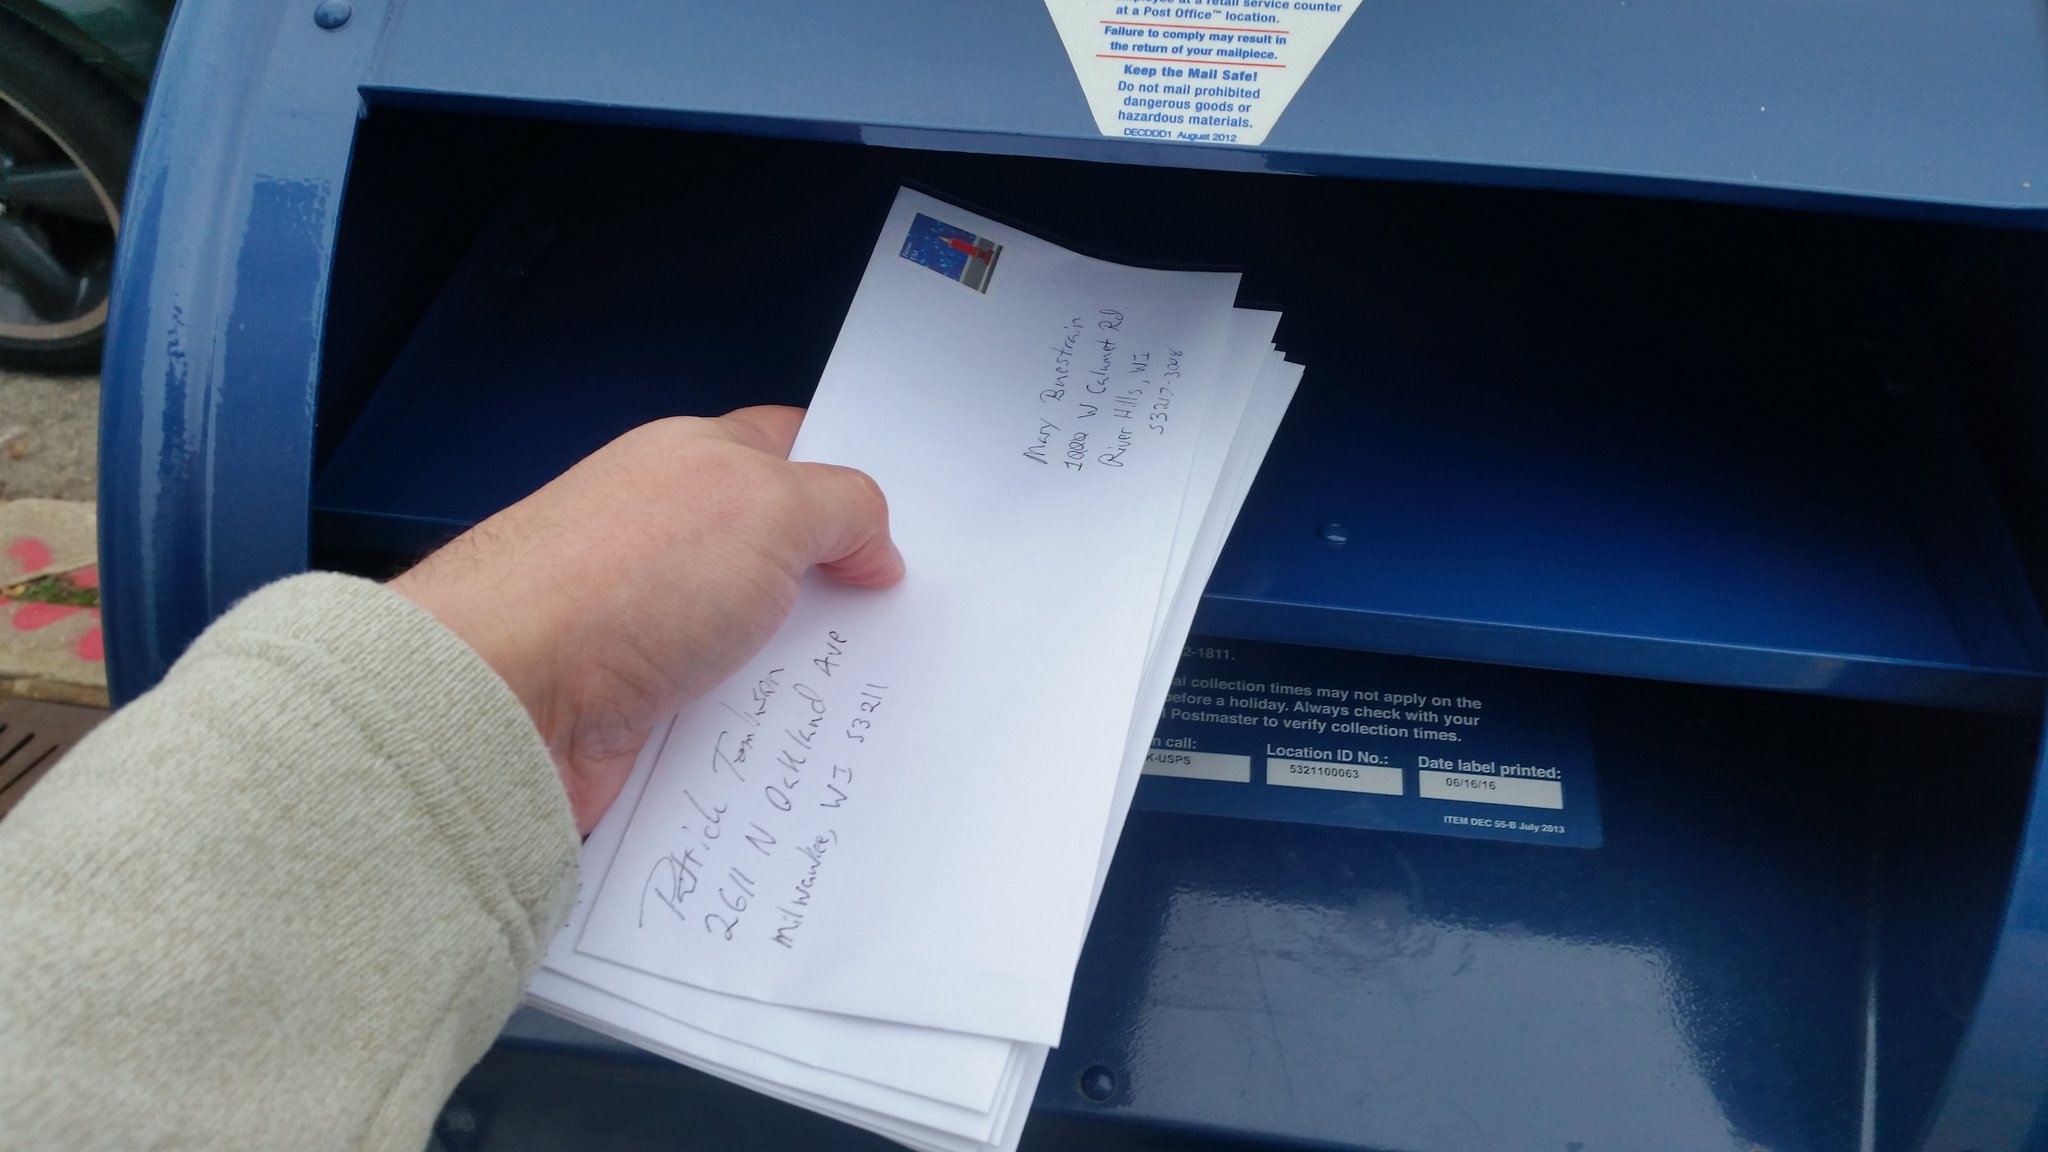 at a retail service counter
at a Post Office™ location.
Failure to comply may result in
the return of your mailpiece.
Keep the Mail Safe!
Do not mail prohibited
dangerous goods or
hazardous materials.
DECDDD1 August 2012
Mary Buestrain
1000 W Calumet Rd
River Hills, WI
53217-3008
Patrick Tomlinson
2611 N Oakland Ave
Milwaukee, WI 53211
2-1811.
collection times may not apply on the
before a holiday. Always check with your
Postmaster to verify collection times.
call:
K-USPS
Location ID No.:
5321100063
Date label printed:
06/16/16
ITEM DEC 55-B July 2013